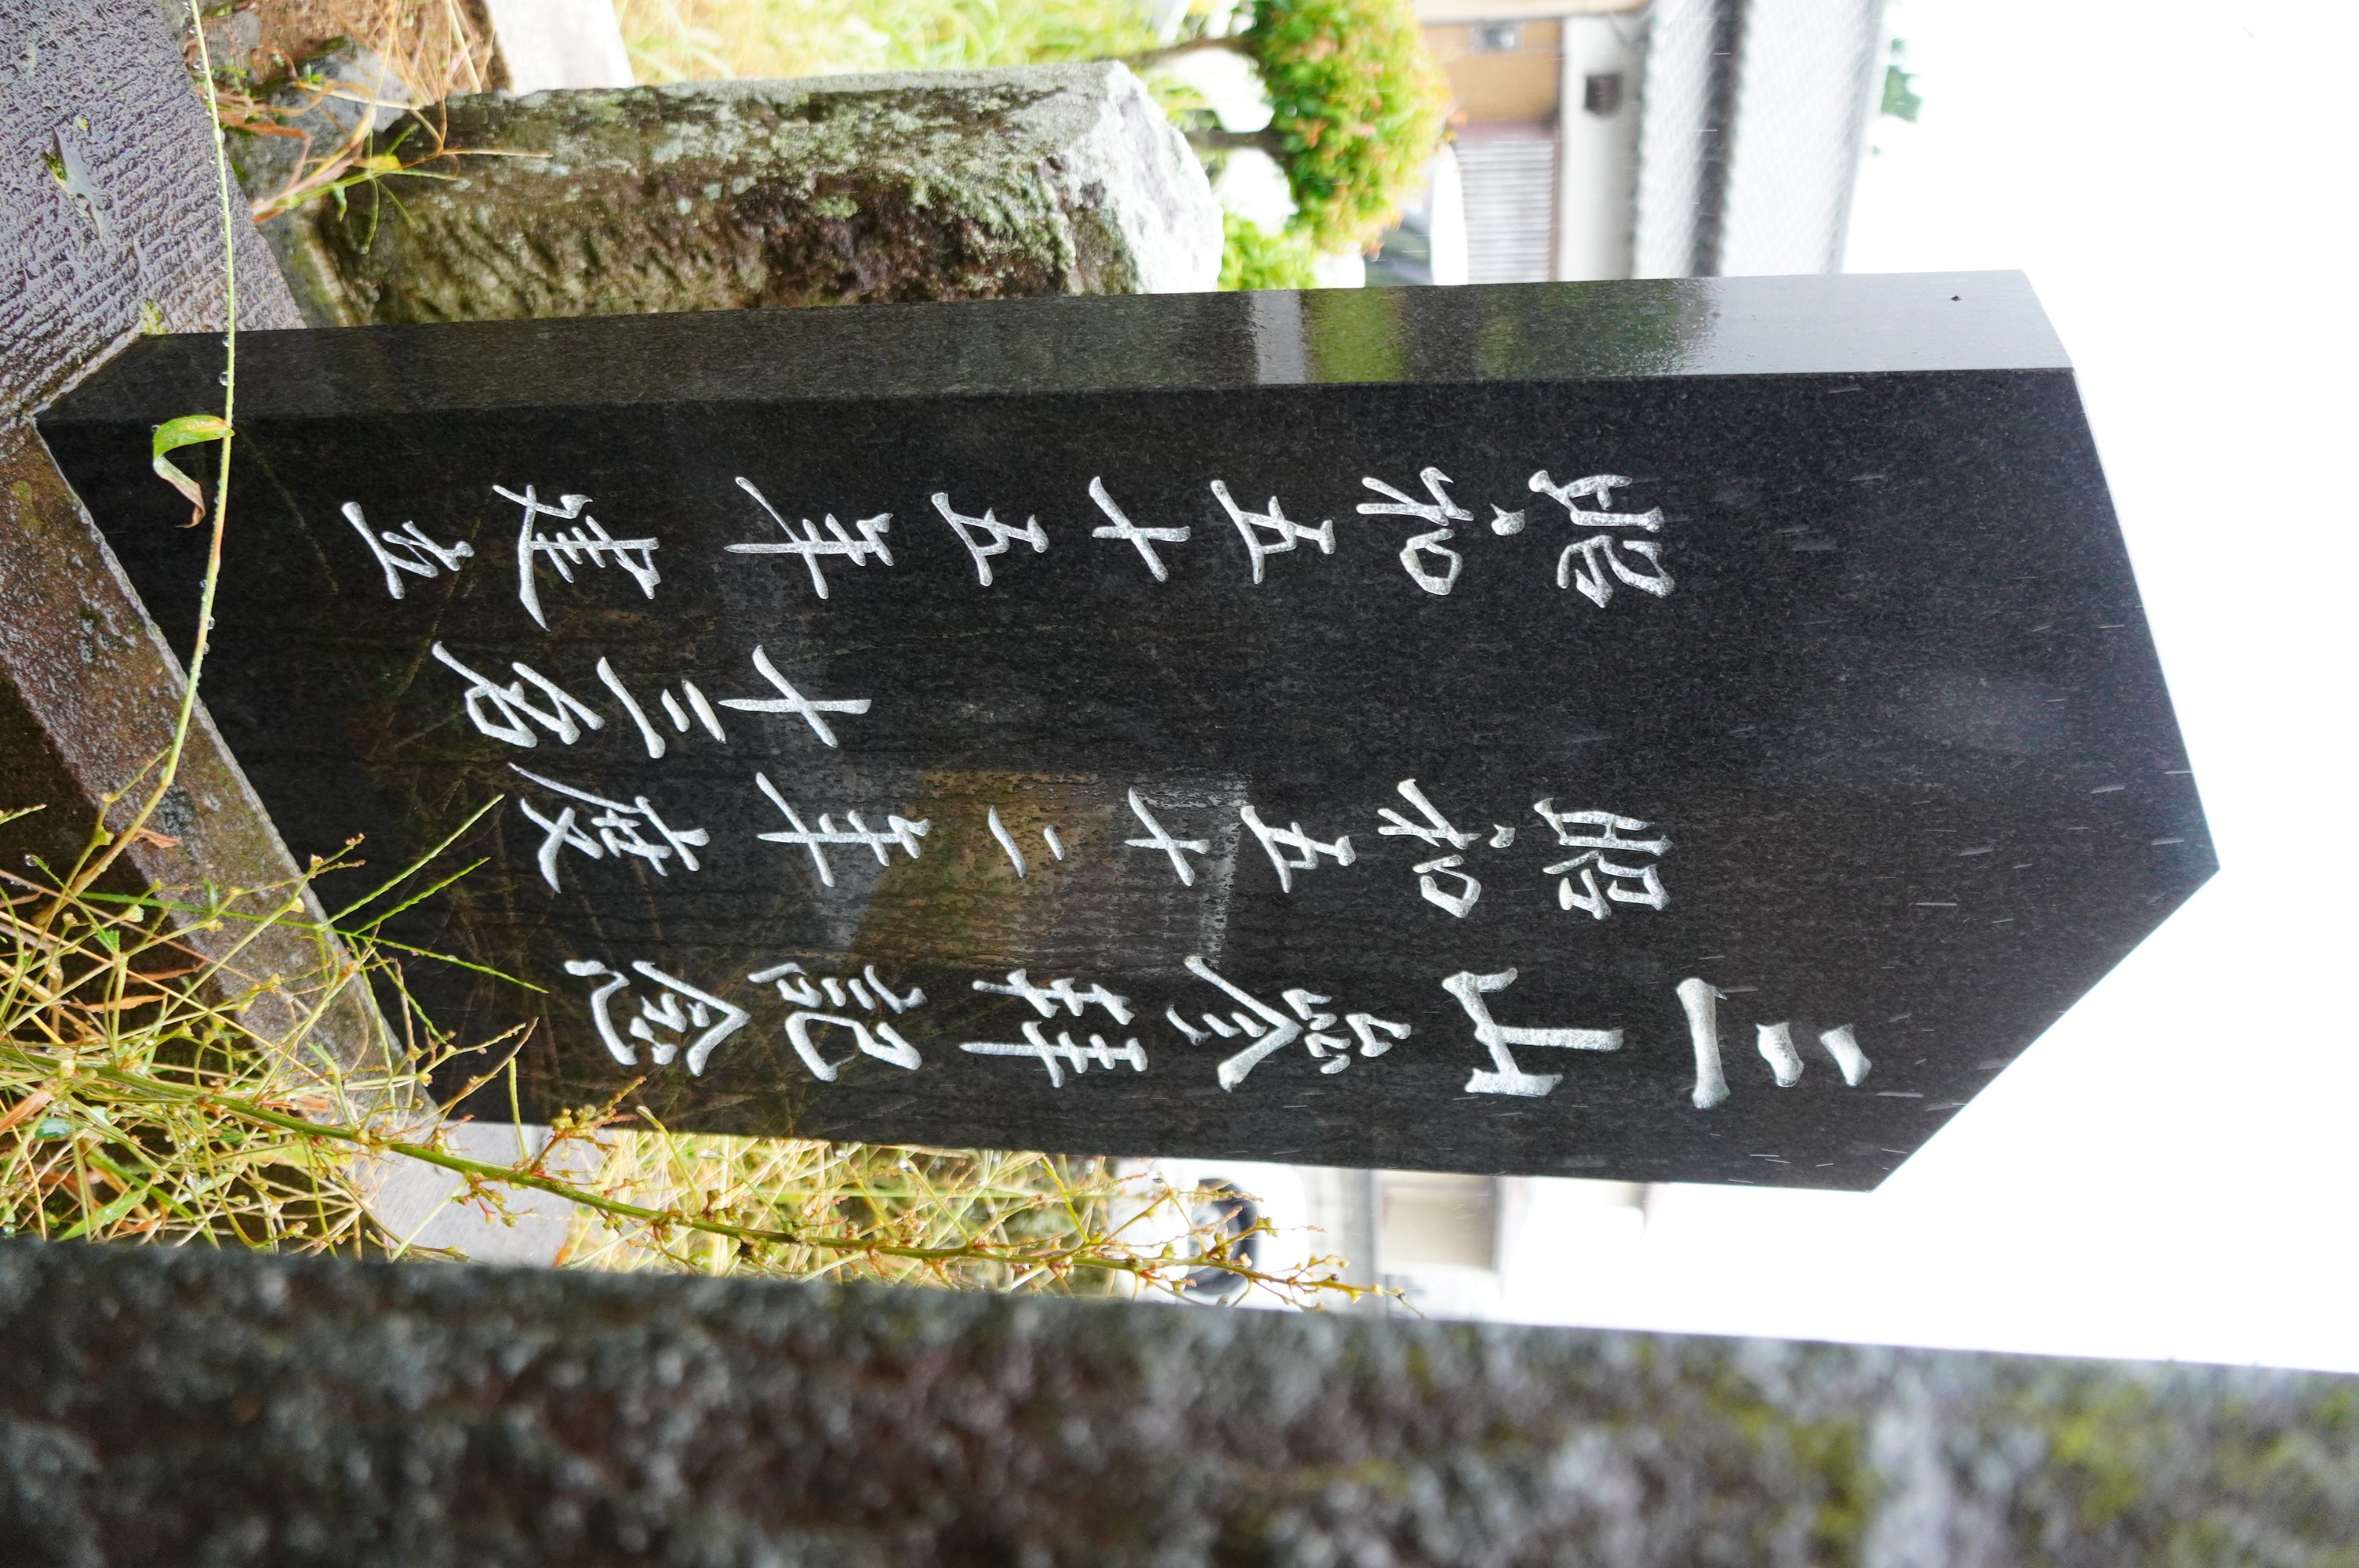 三山參拝記念
昭和五十二年度
十三名
昭和五十五年建立